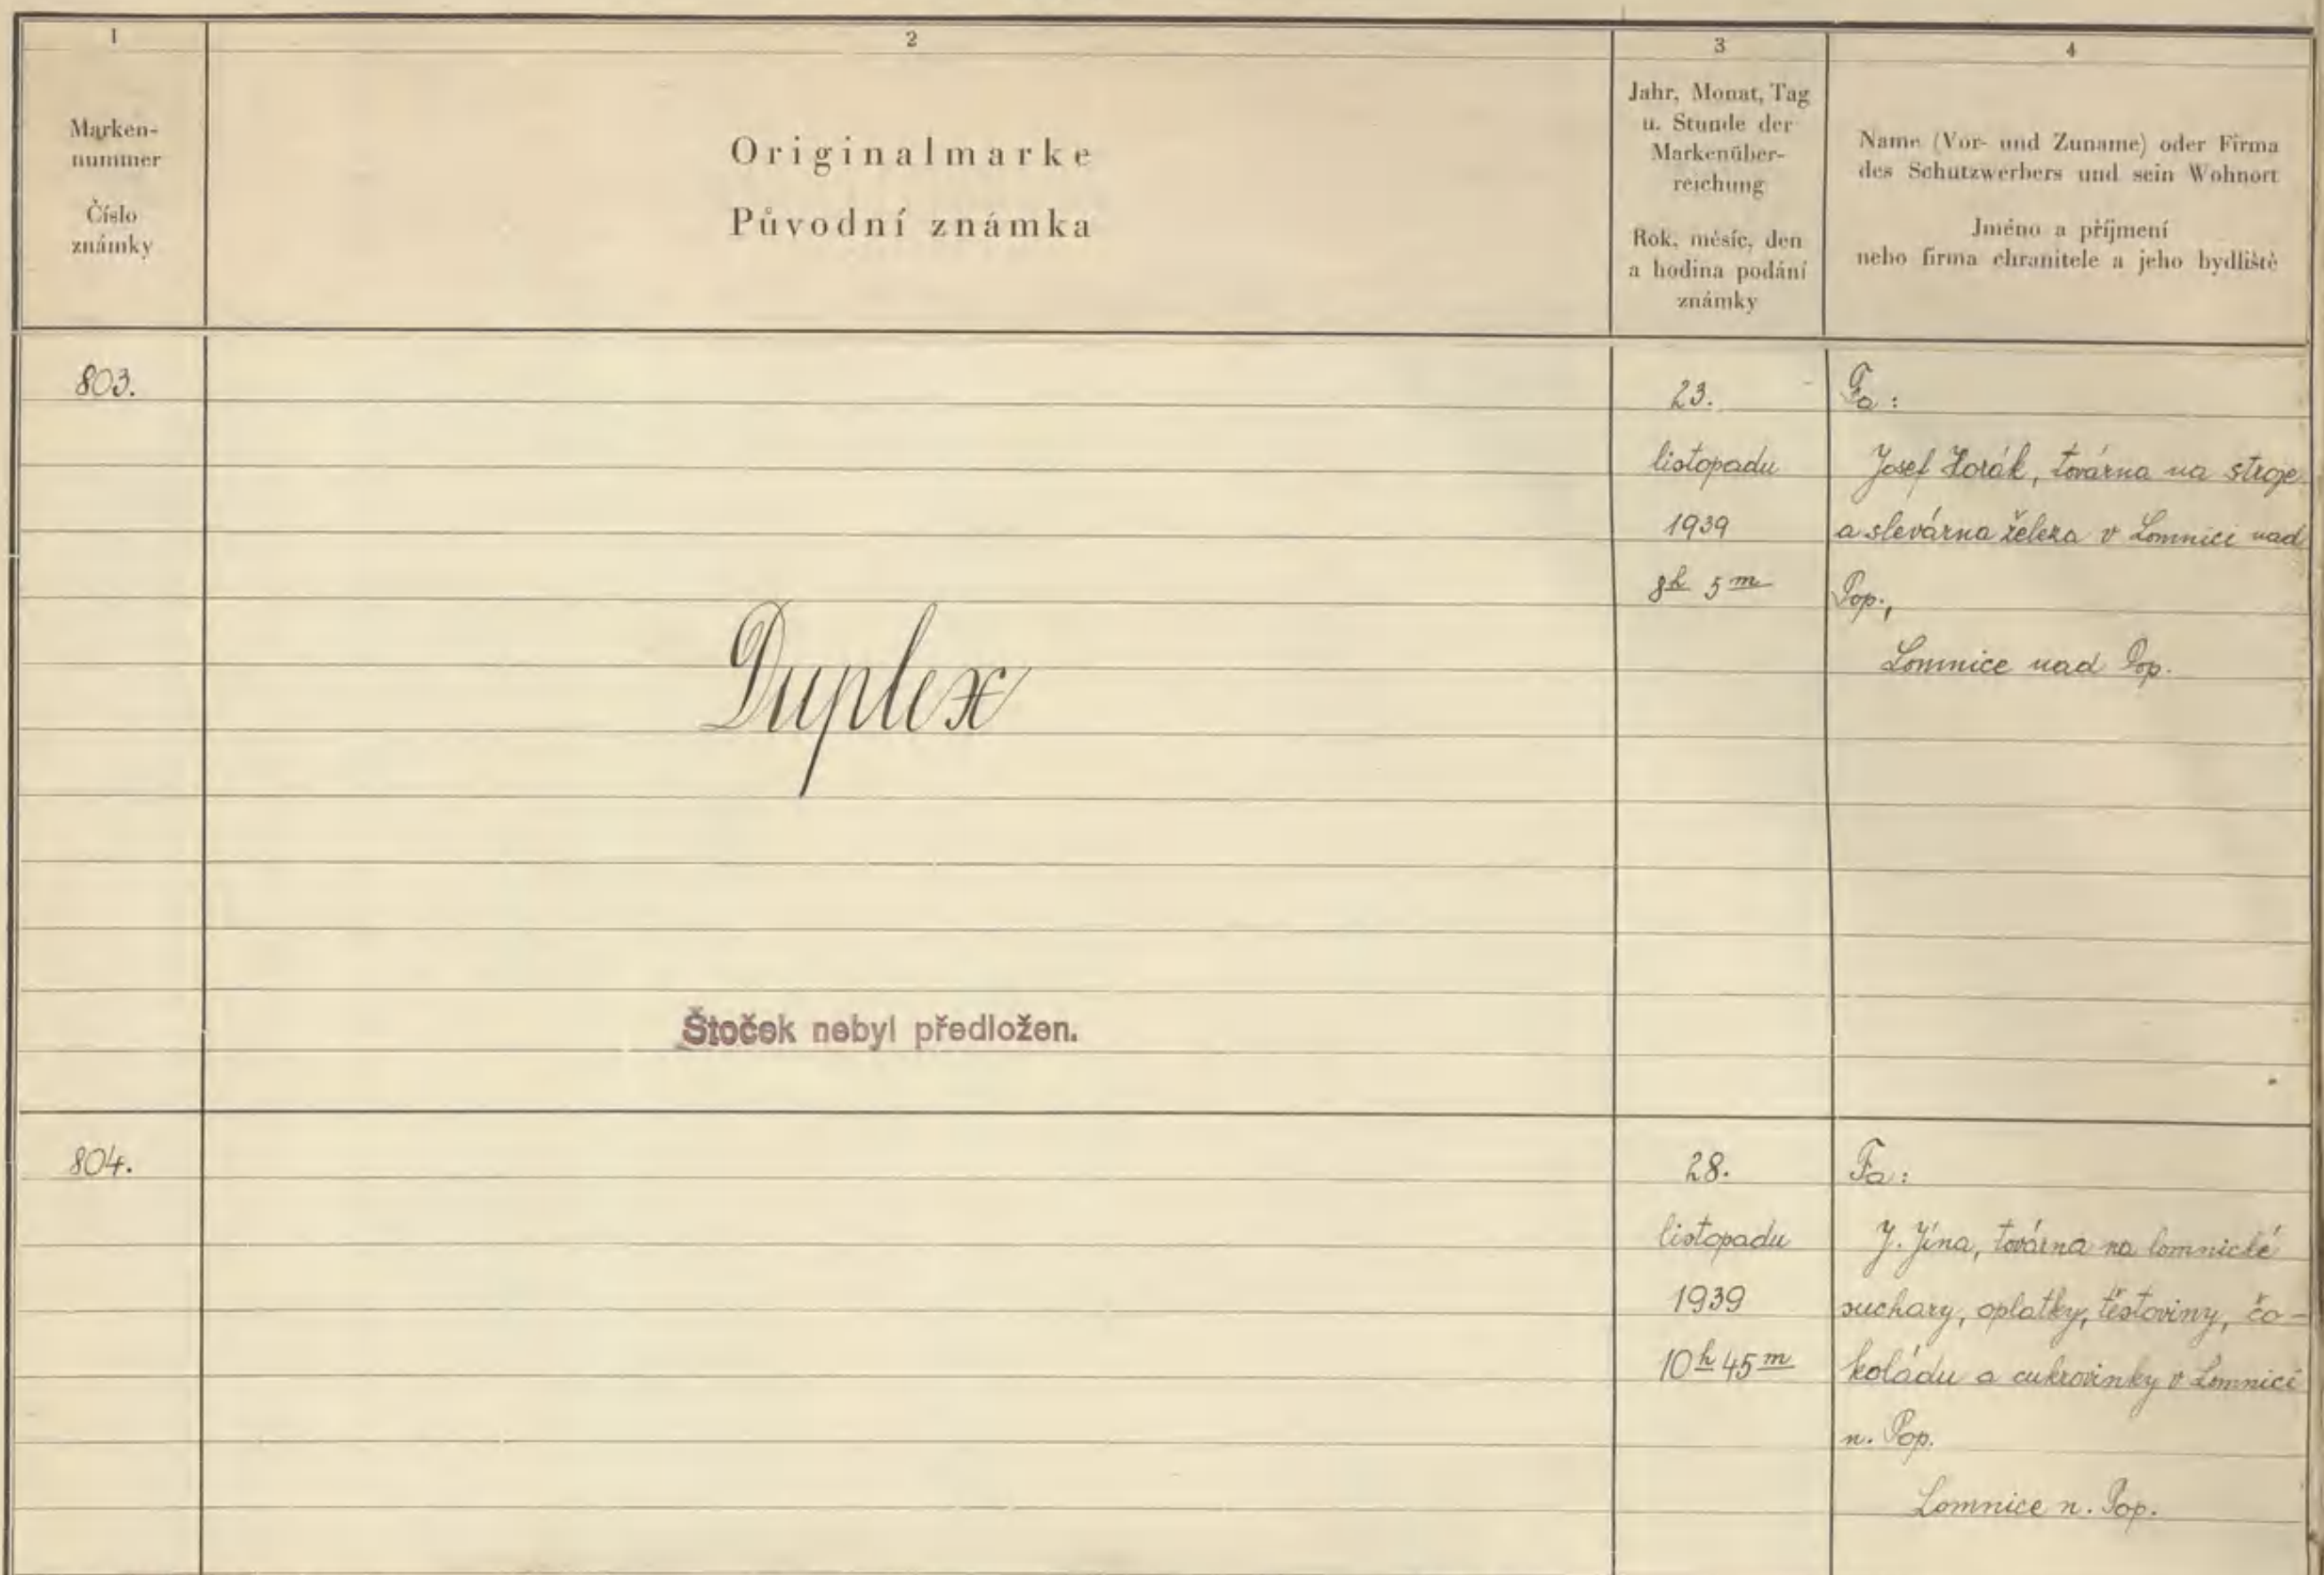 1
2
3
4
Marken-
nummer
Číslo
známky
Originalmarke
Původní známka
Jahr, Monat, Tag
u. Stunde der
Markenüber-
reichung
Rok, měsíc, den
a hodina podání
známky
Name (Vor- und Zuname) oder Firma
des Schutzwerbers und sein Wohnort
Jméno a příjmení
nebo firma chranitele a jeho bydliště
803.
Duplex
Štoček nebyl předložen.
23.
listopadu
1939
8h 5m
Fa:
Josef Horák, továrna na stroje
a slevárna železa v Lomnici nad
Pop.,
Lomnice nad Pop.
804.
28.
listopadu
1939
10h 45m
Fa:
J. Jína, továrna na lomnické
suchary, oplatky, těstoviny, čo-
koládu a cukrovinky v Lomnici
n. Pop.
Lomnice n. Pop.